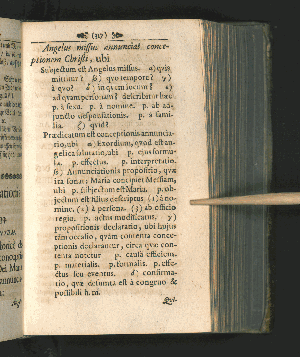 (317)
Angelus missus annunciat conce-
ptionem Christi, ubi
Subjectum est Angelus missus. α) quis
mittitur? β) quo tempore? γ)
à quo? δ) in quem locum? ε)
ad quam personam? describitur haec
p. à sexu. p. à nomine. p. ab ad-
juncto desponsationis. p. à fami-
lia. ζ) quid?
Praedicatum est conceptionis annuncia-
tio, ubi α) Exordium, quod est an-
gelica salutatio, ubi p. ejus forma-
la. p. effectus. p. interpretatio.
β) Annunciationis propositio, quae
ita sonat: Maria concipiet Messiam,
ubi p. subjectum est Maria. p. ob-
jectum est filius descriptus (1) à no-
mine. (2) à persona. (3) ab officio
regio. p. actus modificatus. γ)
propositionis declaratio, ubi hujus
tàm occasio, quàm contenta conce-
ptionis declarantur, circa quae con-
tenta notetur p. causa efficiens.
p. materialis. p. formalis. p. effe-
ctus seu eventus. δ) confirma-
tio, quae desumta est à congruo &
possibili